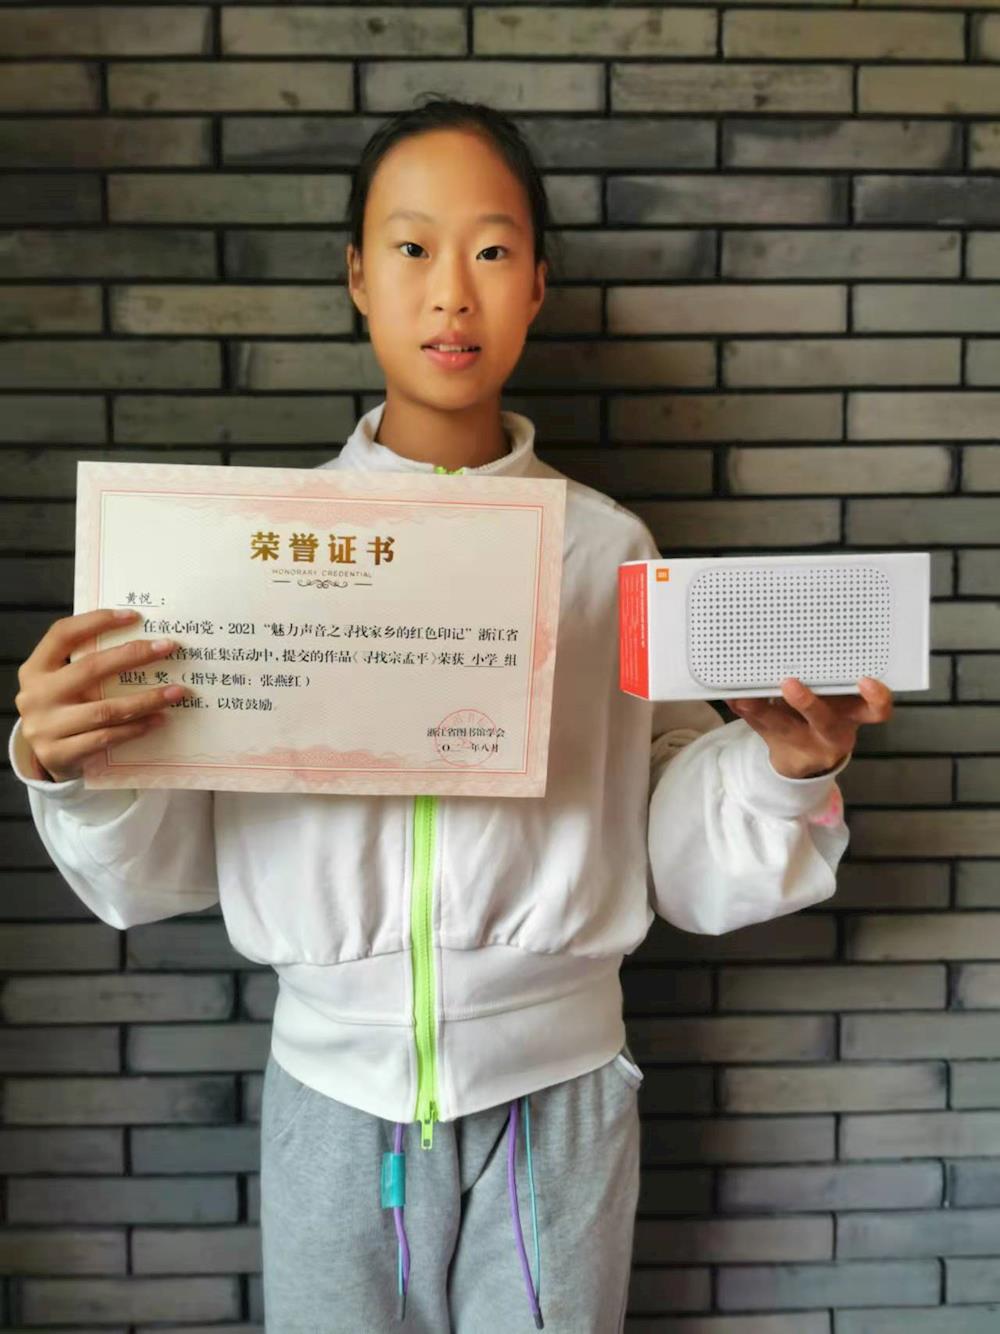 荣誉证书
HONORARY CREDENTIAL
黄悦：
在童心向党·2021“魅力声音之寻找家乡的红色印记”浙江省
音频征集活动中，提交的作品《寻找宗孟平》荣获 小学 组
银星 奖。（指导老师：张燕红）
此证，以资鼓励
浙江省图书馆学会
二〇二一年八月